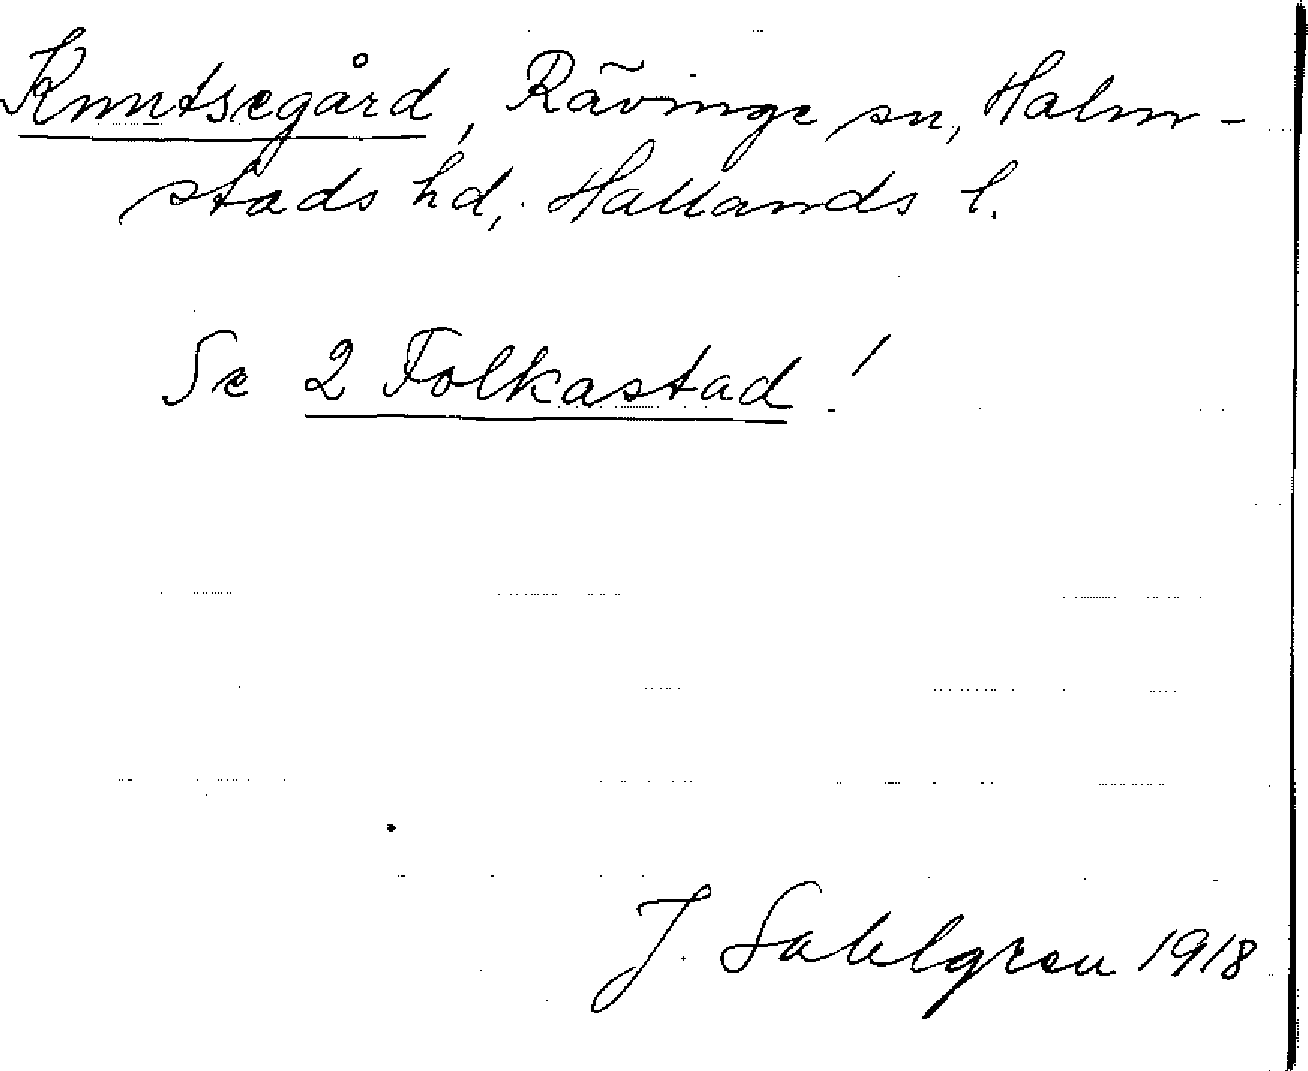 Knutsegård, Rävinge sn, Halm-
stads hd, Hallands l.
Se 2 Folkastad!
J. Sahlgren 1918